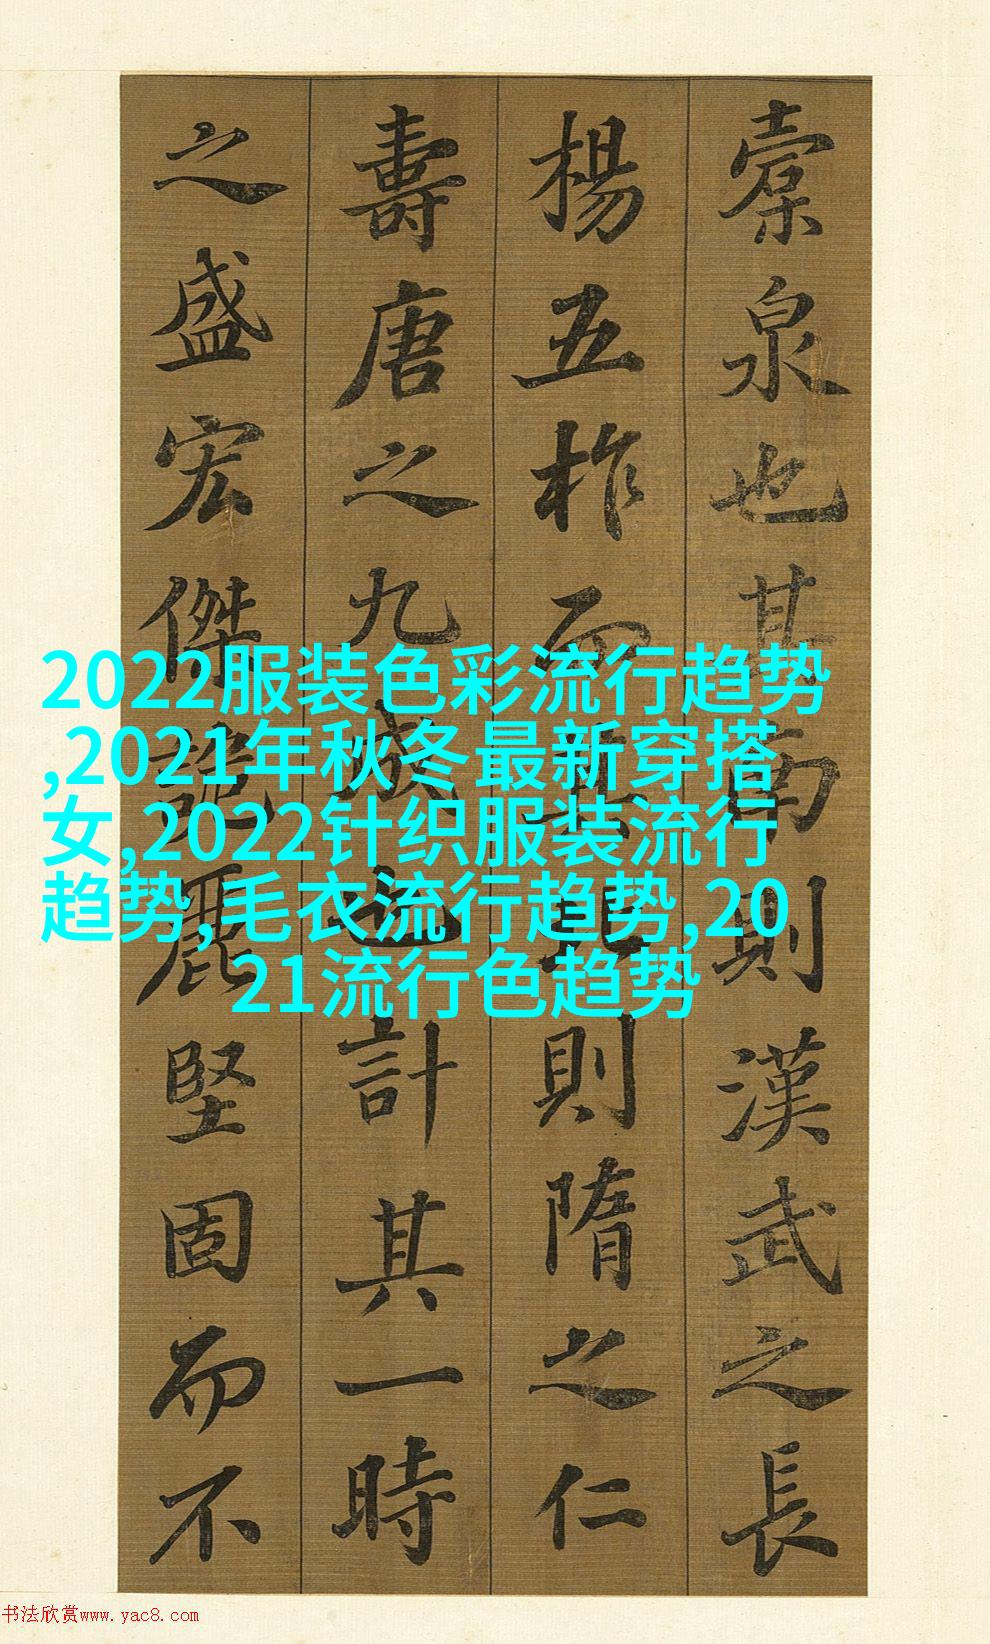 橐泉也其南則漢武之長
楊五柞而其北則隋之仁
壽唐之九成也計其一時
之盛宏傑詭麗堅固而不
2022服装色彩流行趋势
,2021年秋冬最新穿搭
女,2022针织服装流行
趋势,毛衣流行趋势,20
21流行色趋势
书法欣赏www.yac8.com